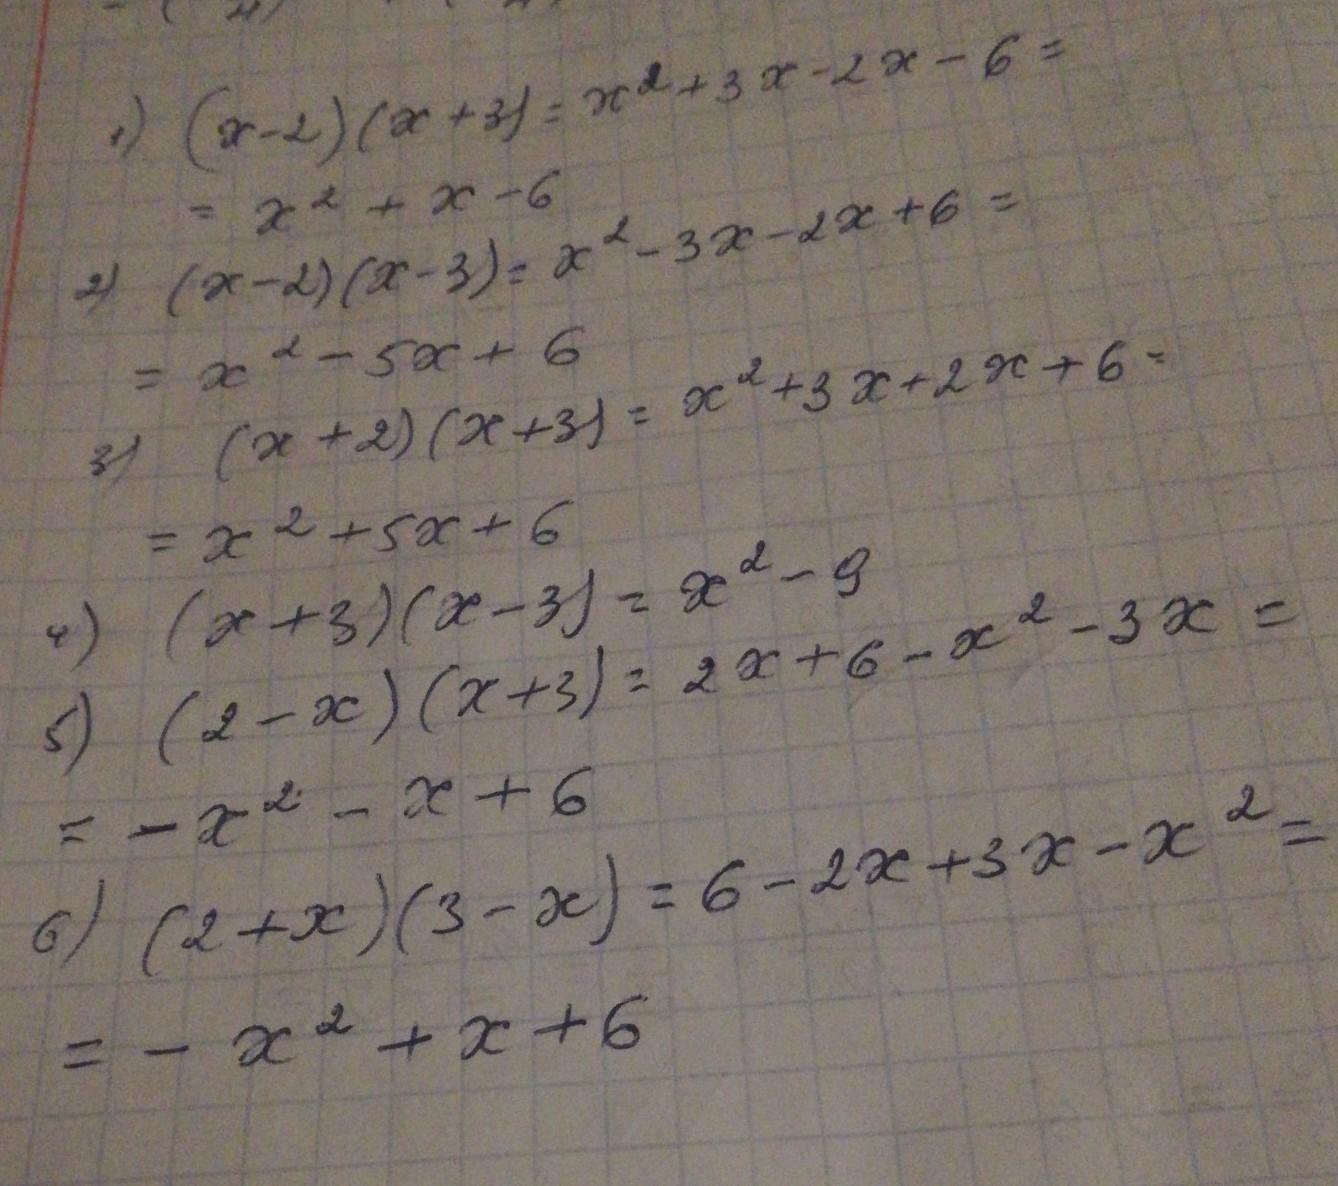 1) (x-2)(x+3) = x² + 3x - 2x - 6 =
= x² + x - 6
2) (x-2)(x-3) = x² - 3x - 2x + 6 =
= x² - 5x + 6
3) (x+2)(x+3) = x² + 3x + 2x + 6 =
= x² + 5x + 6
4) (x+3)(x-3) = x² - 9
5) (2-x)(x+3) = 2x + 6 - x² - 3x =
= - x² - x + 6
6) (2+x)(3-x) = 6 - 2x + 3x - x² =
= - x² + x + 6